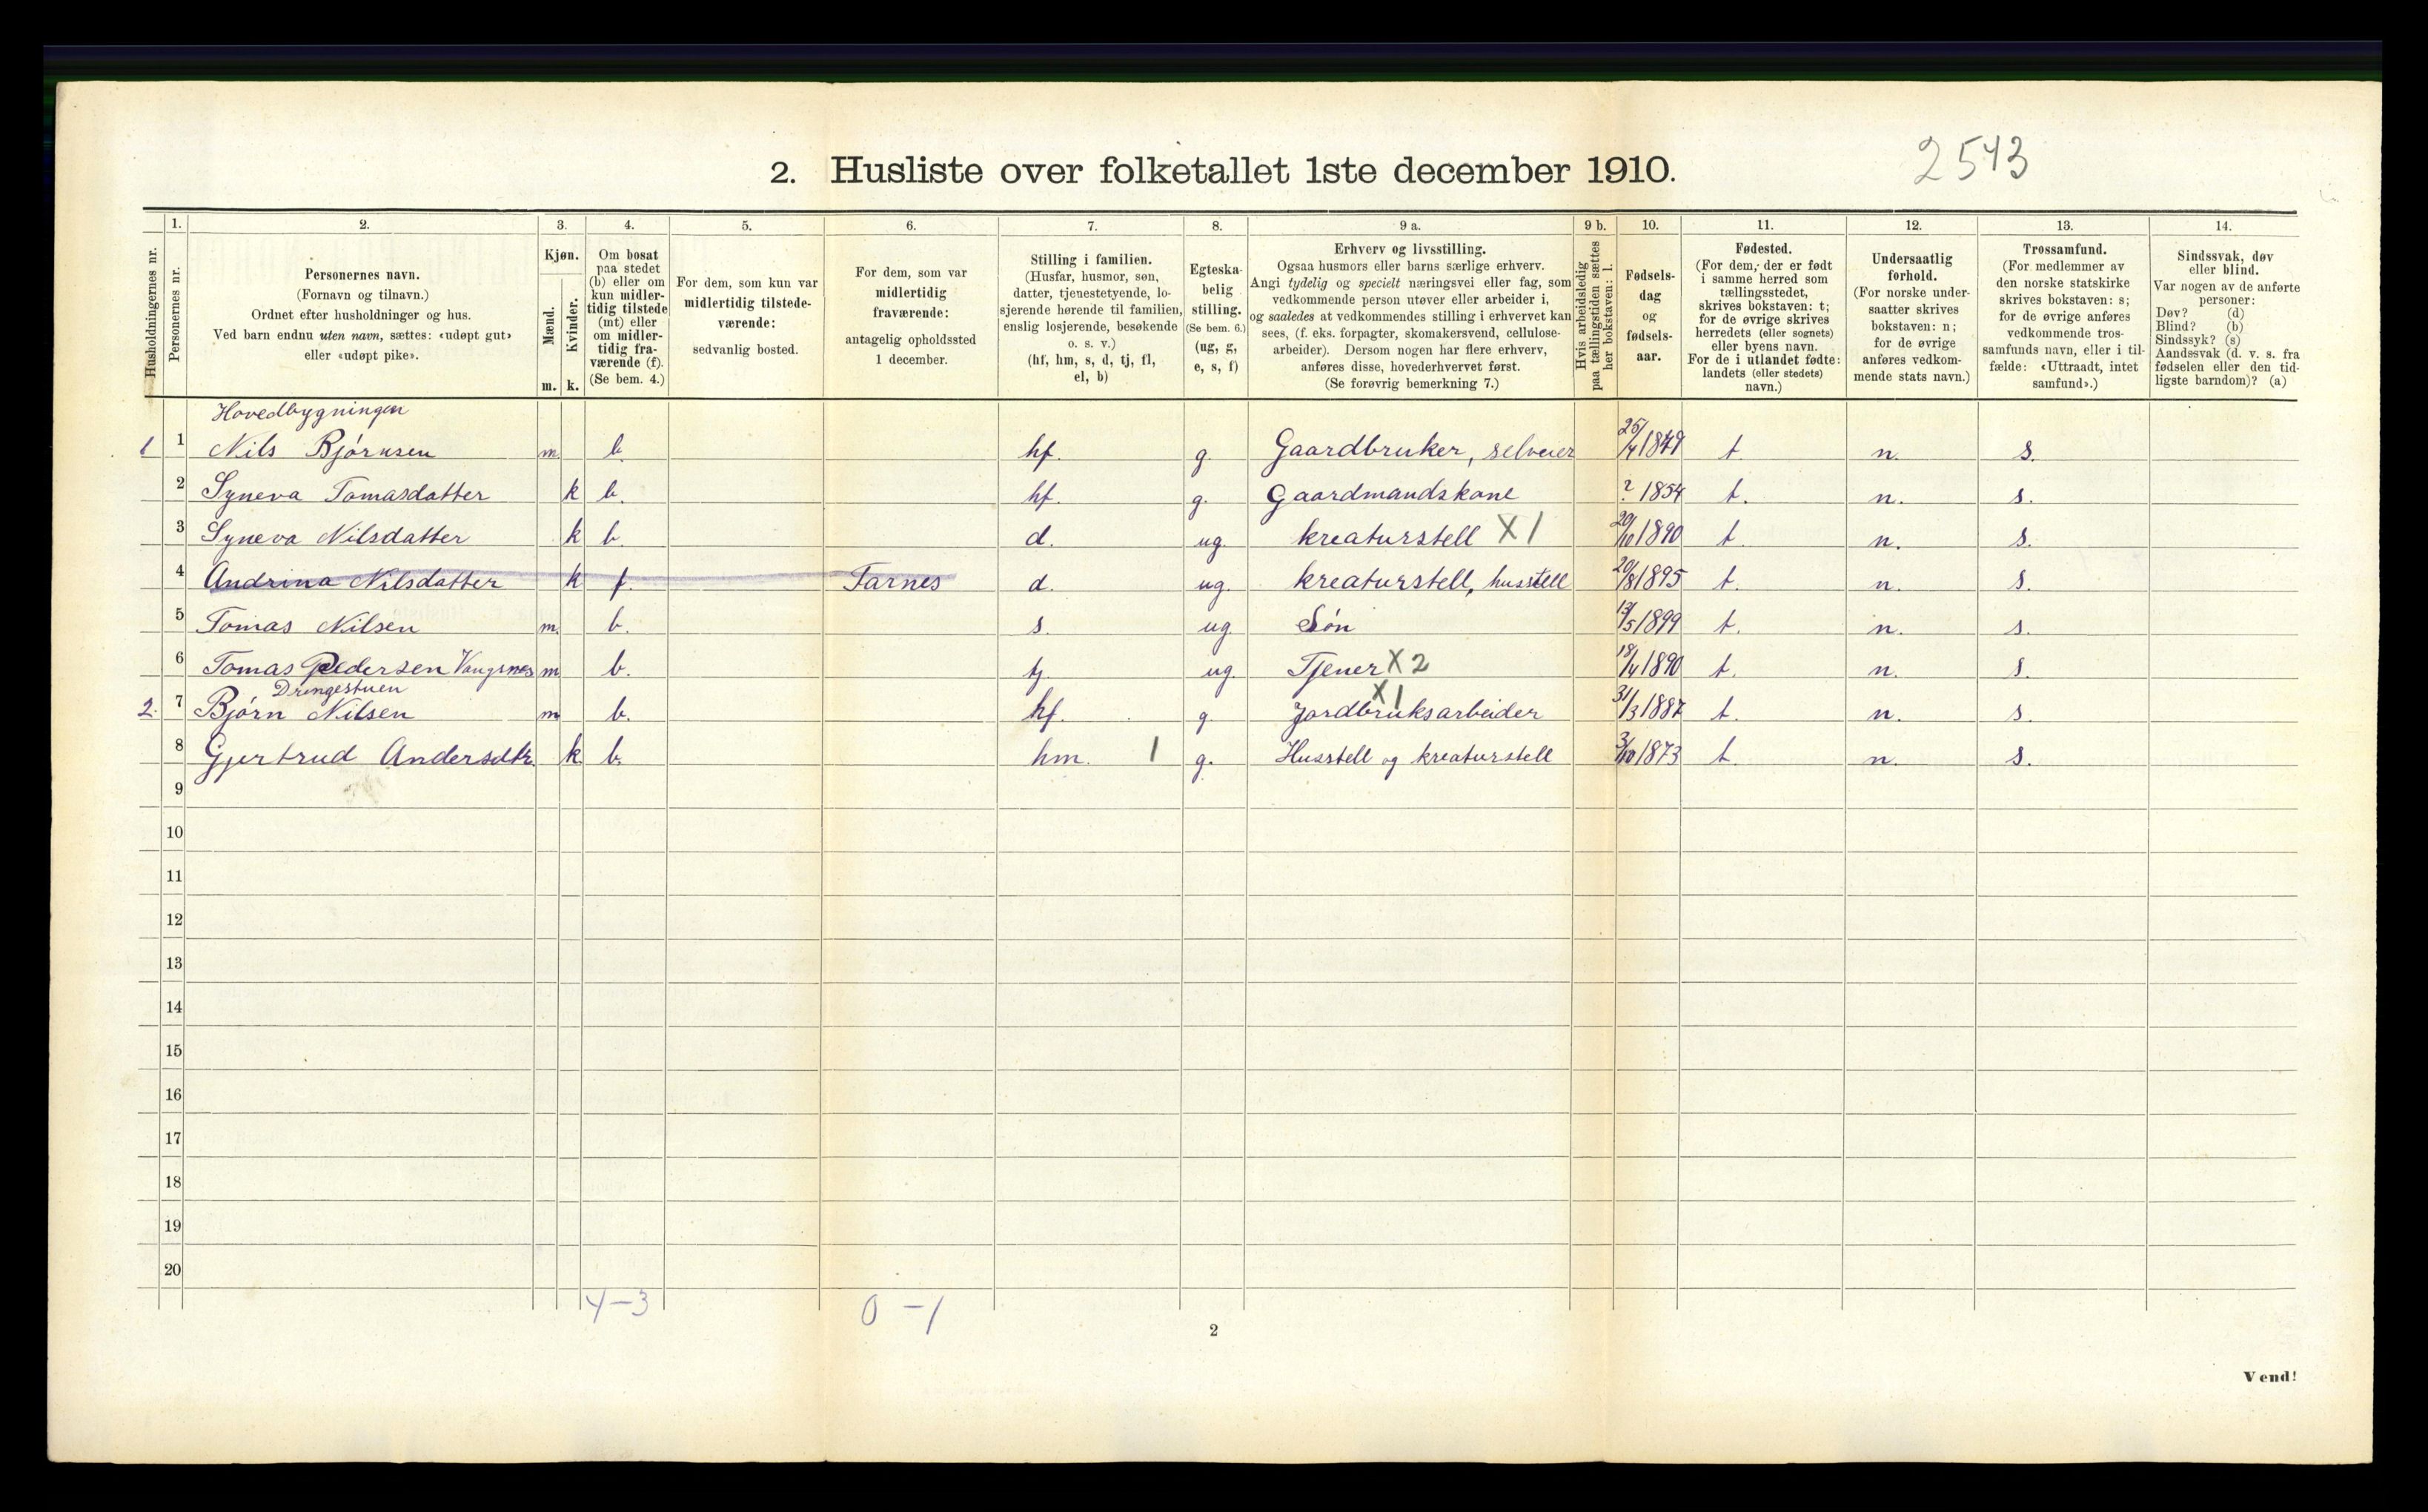 2543
2. Husliste over folketallet 1ste december 1910.
Husholdningernes nr.
1.
Personernes nr.
2.
Personernes navn.
(Fornavn og tilnavn.)
Ordnet efter husholdninger og hus.
Ved barn endnu uten navn, sættes: «udøpt gut»
eller «udøpt pike».
3.
Kjøn.
Mænd.
Kvinder.
m. k.
4.
Om bosat
paa stedet
(b) eller om
kun midler-
tidig tilstede
(mt) eller
om midler-
tidig fra-
værende (f).
(Se bem. 4.)
5.
For dem, som kun var
midlertidig tilstede-
værende:
sedvanlig bosted.
6.
For dem, som var
midlertidig
fraværende:
antagelig opholdssted
1 december.
7.
Stilling i familien.
(Husfar, husmor, søn,
datter, tjenestetyende, lo-
sjerende hørende til familien,
enslig losjerende, besøkende
o. s. v.)
(hf, hm, s, d, tj, fl,
el, b)
8.
Egteska-
belig
stilling.
(Se bem. 6.)
(ug, g,
e, s, f)
9 a.
Erhverv og livsstilling.
Ogsaa husmors eller barns særlige erhverv.
Angi tydelig og specielt næringsvei eller fag, som
vedkommende person utøver eller arbeider i,
og saaledes at vedkommendes stilling i erhvervet kan
sees, (f. eks. forpagter, skomakersvend, cellulose-
arbeider). Dersom nogen har flere erhverv,
anføres disse, hovederhvervet først.
(Se forøvrig bemerkning 7.)
9 b.
Hvis arbeidsledig
paa tællingstiden sættes
her bokstaven: l.
10.
Fødsels-
dag
og
fødsels-
aar.
11.
Fødested.
(For dem, der er født
i samme herred som
tællingsstedet,
skrives bokstaven: t;
for de øvrige skrives
herredets (eller sognets)
eller byens navn.
For de i utlandet fødte:
landets (eller stedets)
navn.)
12.
Undersaatlig
forhold.
(For norske under-
saatter skrives
bokstaven: n;
for de øvrige
anføres vedkom-
mende stats navn.)
13.
Trossamfund.
(For medlemmer av
den norske statskirke
skrives bokstaven: s;
for de øvrige anføres
vedkommende tros-
samfunds navn, eller i til-
fælde: «Uttraadt, intet
samfund».)
14.
Sindssvak, døv
eller blind.
Var nogen av de anførte
personer:
Døv? (d)
Blind? (b)
Sindssyk? (s)
Aandssvak (d. v. s. fra
fødselen eller den tid-
ligste barndom)? (a)
Hovedbygningen
1 1 Nils Bjørnsen m. b. hf. g. Gaardbruker, selveier 1849 t. n. s.
2 Syneva Tomasdatter k b. hf. g. Gaardmandskone ? 1854 t. n. s.
3 Syneva Nilsdatter k b. d. ug. kreaturstell X 1 20/10 1890 t. n. s.
4 Andrina Nilsdatter k f. Tarnes d. ug. kreaturstell, husstell 20/8 1895 t. n. s.
5 Tomas Nilsen m. b. s. ug. Søn 13/5 1899 t. n. s.
6 Tomas Pedersen Vangsnes m b. tj. ug. Tjener X 2 18/4 1890 t. n. s.
Drengestuen
2. 7 Bjørn Nilsen m b. hf. g Jordbruksarbeider X 1 31/3 1887 t. n. s.
8 Gjertrud Andersdtr. k b. hm. 1 g. Husstell og kreaturstell 3/10 1873 t. n. s.
9
10
11
12
13
14
15
16
17
18
19
20
4-3 0-1
2
Vend!